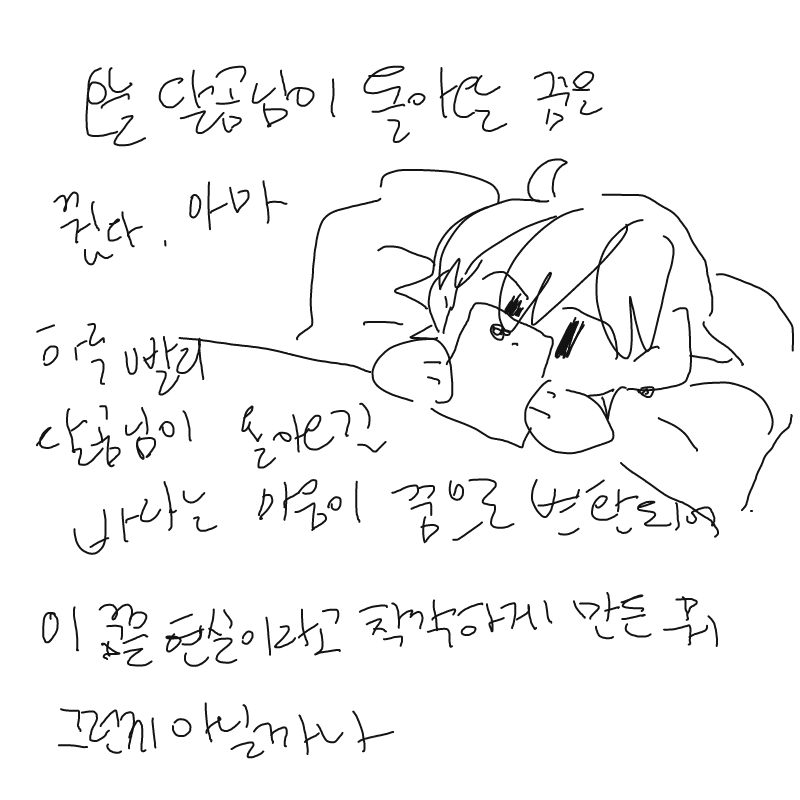 오늘 달곰님이 돌아오는 꿈을
꿨다. 아마
하루 빨리
달곰님이 돌아오길
바라는 마음이 꿈으로 변환되어
이 꿈을 현실이라고 착각하게 만든 뭐
그런게 아닐까나